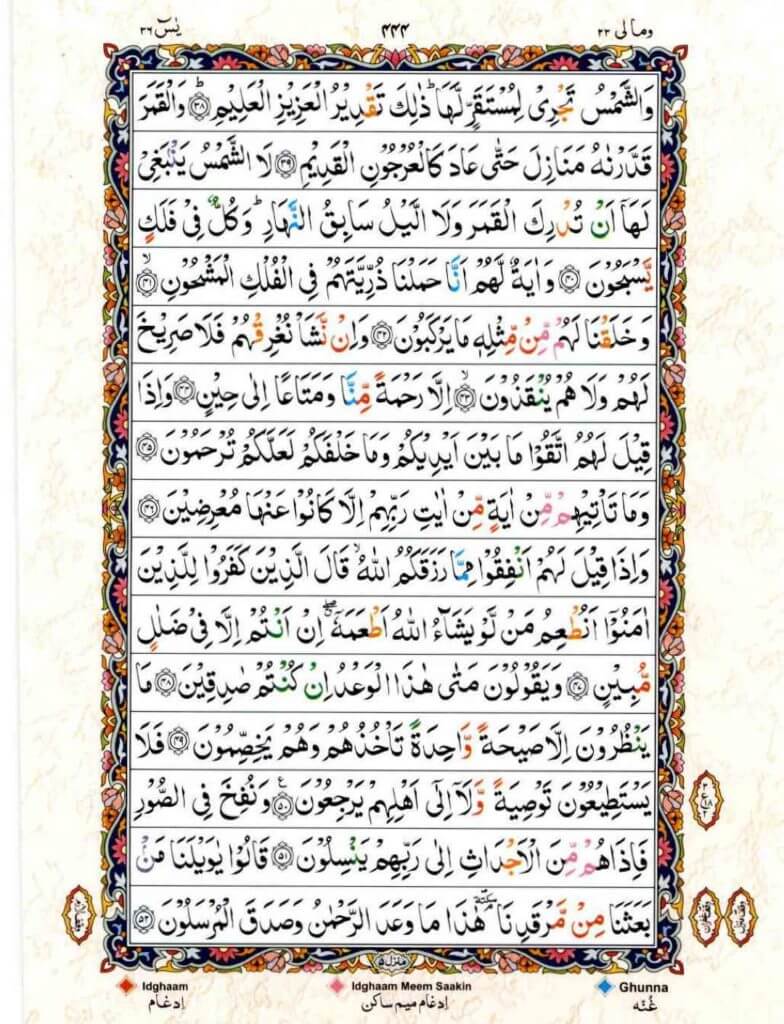 وما لی ۲۳ ۴۴۴ یٰسٓ ۳۶
وَالشَّمۡسُ تَجۡرِیۡ لِمُسۡتَقَرٍّ لَّہَا ؕ ذٰلِکَ تَقۡدِیۡرُ الۡعَزِیۡزِ الۡعَلِیۡمِ ﴿۳۸﴾ؕ وَالۡقَمَرَ
قَدَّرۡنٰہُ مَنَازِلَ حَتّٰی عَادَ کَالۡعُرۡجُوۡنِ الۡقَدِیۡمِ ﴿۳۹﴾ لَا الشَّمۡسُ یَنۡۢبَغِیۡ
لَہَاۤ اَنۡ تُدۡرِکَ الۡقَمَرَ وَلَا الَّیۡلُ سَابِقُ النَّہَارِ ؕ وَکُلٌّ فِیۡ فَلَکٍ
یَّسۡبَحُوۡنَ ﴿۴۰﴾ وَاٰیَۃٌ لَّہُمۡ اَنَّا حَمَلۡنَا ذُرِّیَّتَہُمۡ فِی الۡفُلۡکِ الۡمَشۡحُوۡنِ ﴿۴۱﴾ۙ
وَخَلَقۡنَا لَہُمۡ مِّنۡ مِّثۡلِہٖ مَا یَرۡکَبُوۡنَ ﴿۴۲﴾ وَاِنۡ نَّشَاۡ نُغۡرِقۡہُمۡ فَلَا صَرِیۡخَ
لَہُمۡ وَلَا ہُمۡ یُنۡقَذُوۡنَ ﴿۴۳﴾ۙ اِلَّا رَحۡمَۃً مِّنَّا وَمَتَاعًا اِلٰی حِیۡنٍ ﴿۴۴﴾ وَاِذَا
قِیۡلَ لَہُمُ اتَّقُوۡا مَا بَیۡنَ اَیۡدِیۡکُمۡ وَمَا خَلۡفَکُمۡ لَعَلَّکُمۡ تُرۡحَمُوۡنَ ﴿۴۵﴾
وَمَا تَاۡتِیۡہِمۡ مِّنۡ اٰیَۃٍ مِّنۡ اٰیٰتِ رَبِّہِمۡ اِلَّا کَانُوۡا عَنۡہَا مُعۡرِضِیۡنَ ﴿۴۶﴾
وَاِذَا قِیۡلَ لَہُمۡ اَنۡفِقُوۡا مِمَّا رَزَقَکُمُ اللّٰہُ ۙ قَالَ الَّذِیۡنَ کَفَرُوۡا لِلَّذِیۡنَ
اٰمَنُوۡۤا اَنُطۡعِمُ مَنۡ لَّوۡ یَشَآءُ اللّٰہُ اَطۡعَمَہٗۤ ٭ۖ اِنۡ اَنۡتُمۡ اِلَّا فِیۡ ضَلٰلٍ
مُّبِیۡنٍ ﴿۴۷﴾ وَیَقُوۡلُوۡنَ مَتٰی ہٰذَا الۡوَعۡدُ اِنۡ کُنۡتُمۡ صٰدِقِیۡنَ ﴿۴۸﴾ مَا
یَنۡظُرُوۡنَ اِلَّا صَیۡحَۃً وَّاحِدَۃً تَاۡخُذُہُمۡ وَہُمۡ یَخِصِّمُوۡنَ ﴿۴۹﴾ فَلَا
یَسۡتَطِیۡعُوۡنَ تَوۡصِیَۃً وَّلَاۤ اِلٰۤی اَہۡلِہِمۡ یَرۡجِعُوۡنَ ﴿۵۰﴾ وَنُفِخَ فِی الصُّوۡرِ
فَاِذَا ہُمۡ مِّنَ الۡاَجۡدَاثِ اِلٰی رَبِّہِمۡ یَنۡسِلُوۡنَ ﴿۵۱﴾ قَالُوۡا یٰوَیۡلَنَا مَنۡۢ
بَعَثَنَا مِنۡ مَّرۡقَدِنَا سکتۃ ہٰذَا مَا وَعَدَ الرَّحۡمٰنُ وَصَدَقَ الۡمُرۡسَلُوۡنَ ﴿۵۲﴾
منزل ۵
Idghaam Idghaam Meem Saakin Ghunna
اِدغام اِدغام میم ساکن غُنّہ